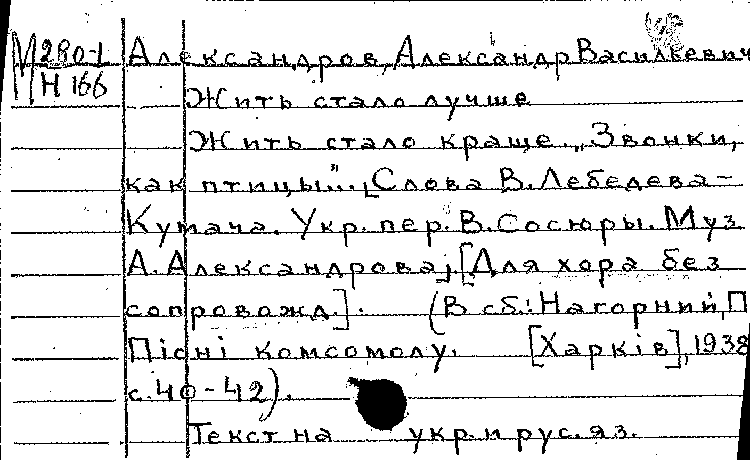 М 280-1 Александров, Александр Васильевич
Н 166
Жить стало лучше
Жить стало краще. „Звонки,
как птицы..". [Слова В. Лебедева-
Кумача. Укр. пер. В. Сосюры. Муз
А. Александрова]. [Для хора без
сопровожд.]. (В сб.: Нагорний, П
Пісні комсомолу. [Харків], 1938
с. 40-42).
Текст на укр. и рус. яз.